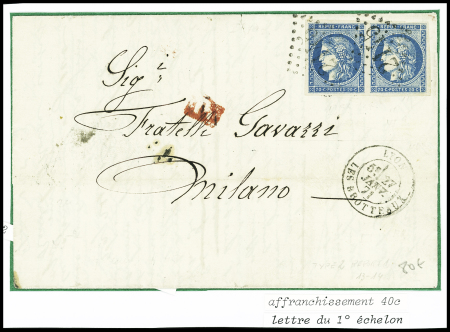 REPUB. FRANC. REPUB. FRANC.
20 C. POSTES 20 C. 20 C. POSTES 20 C.
Sig.i
Fratelli Gavazzi
Milano
LYON
LES BROTTEAUX
JANV.
affranchissement 40c
lettre du 1° échelon